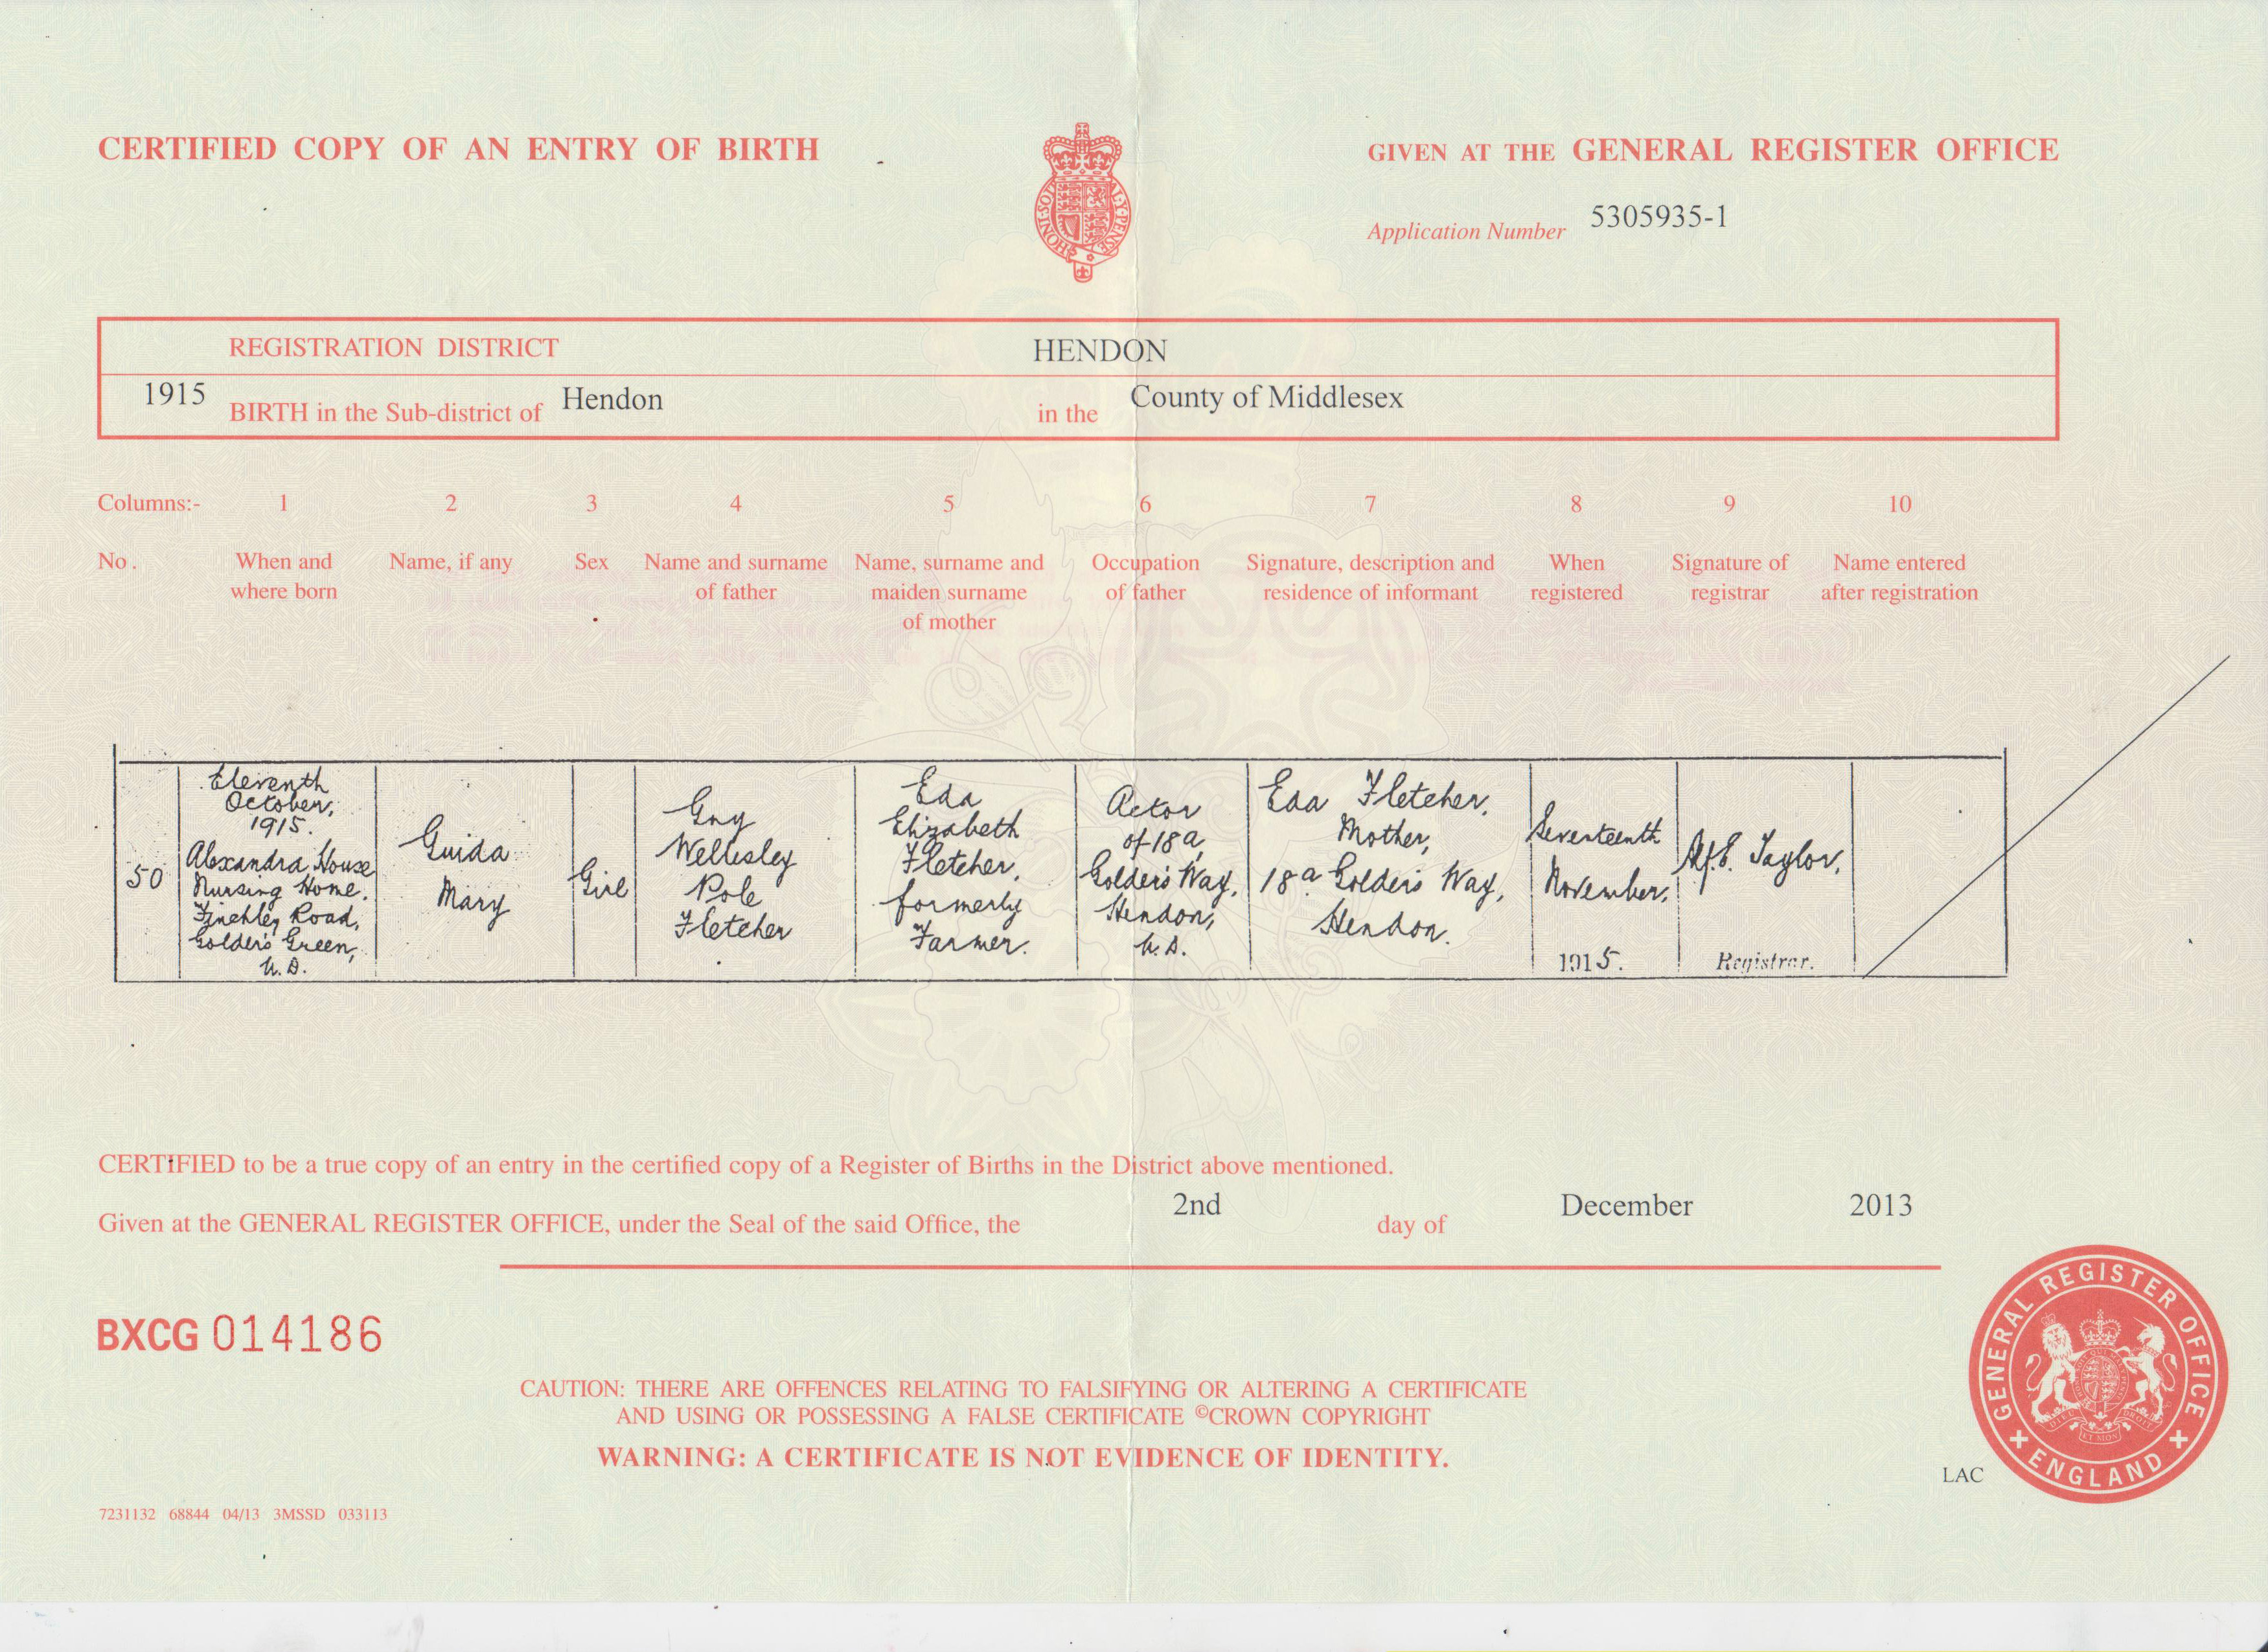 CERTIFIED COPY OF AN ENTRY OF BIRTH
GIVEN AT THE GENERAL REGISTER OFFICE
HONI·SOIT AL·Y·PENSE
Application Number 5305935-1
REGISTRATION DISTRICT HENDON
1915 BIRTH in the Sub-district of Hendon in the County of Middlesex
Columns:- 1 2 3 4 5 6 7 8 9 10
No. When and where born
Name, if any
Sex
Name and surname
of father
Name, surname and
maiden surname
of mother
Occupation
of father
Signature, description and
residence of informant
When
registered
Signature of
registrar
Name entered
after registration
50
Eleventh
October,
1915.
Alexandra House
Nursing Home.
Finchley Road,
Golder's Green,
U.D.
Guida
Mary
Girl
Guy
Wellesley
Pole
Fletcher
Eda
Elizabeth
Fletcher,
formerly
Farmer.
Actor
of 18a,
Golder's Way,
Hendon,
U.D.
Eda Fletcher.
Mother,
18a Golder's Way,
Hendon.
Seventeenth
November,
1915.
Alf. E. Taylor,
Registrar.
CERTIFIED to be a true copy of an entry in the certified copy of a Register of Births in the District above mentioned.
Given at the GENERAL REGISTER OFFICE, under the Seal of the said Office, the 2nd day of December 2013
BXCG 014186
CAUTION: THERE ARE OFFENCES RELATING TO FALSIFYING OR ALTERING A CERTIFICATE
AND USING OR POSSESSING A FALSE CERTIFICATE ©CROWN COPYRIGHT
WARNING: A CERTIFICATE IS NOT EVIDENCE OF IDENTITY.
GENERAL REGISTER OFFICE
ENGLAND
LAC
7231132 68844 04/13 3MSSD 033113